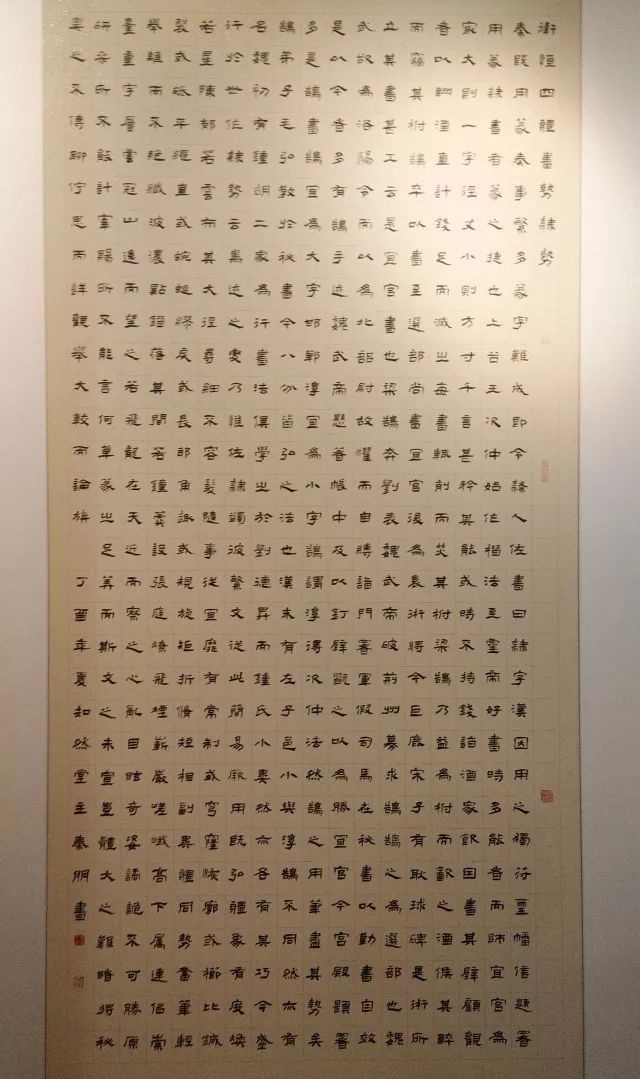 衛恒四體書勢隸勢
秦既用篆奏事繁多篆字難成即令隸人佐書曰隸字漢因用之獨符璽幡信題署
用篆隸書者篆之捷也上谷王次仲始作楷法至靈帝好書時多能者而師宜官為
家大則一字徑丈小則方寸千言甚矜其能或時不持錢詣酒家飲因書其壁顧觀
者以酬酒直計錢足而滅之每書輒削而焚其柎梁鵠乃益為柎而飲之酒候其醉
而竊其柎鵠卒以書至選部尚書宜官後為袁術將今巨鹿宋子有耿球碑是術所
立其書甚工云是宜官書也梁鵠奔劉表魏武帝破荊州募求鵠鵠之為選部也魏
武欲為洛陽令而以為北部尉故懼而自縛詣門署軍假司馬在秘書以勤書自效
是以今者多有鵠手迹魏武帝懸著帳中及以釘壁玩之以為勝宜官今宮殿題署
多是鵠書鵠宜為大字邯鄲淳宜為小字鵠謂淳得次仲法然鵠之用筆盡其勢矣
鵠弟子毛弘教於秘書今八分皆弘之法也漢末有左子邑小與淳鵠不同然亦有
名魏初有鍾胡二家為行書法俱學之於劉德昇而鍾氏小異然亦各有其巧今盛
行於世作隸勢云鳥迹之變乃惟佐隸蠲彼繁文從此簡易厥用既弘體象有度煥
若星陳鬱若雲布其大徑尋細不容髮隨事從宜靡有常制或穹窿恢廓或櫛比鍼
裂或砥平繩直或蜿蜒繆戾或長邪角趣或規旋矩折脩短相副異體同勢奮筆輕
舉離而不絕纖波濃點錯落其間若鐘簴設張庭燎飛煙嶄巖嵯峨高下屬連似崇
臺重宇層雲冠山遠而望之若飛龍在天近而察之心亂目眩奇姿譎詭不可勝原
研桑所不能計宰賜所不能言何草篆之足算而斯文之未宣豈體大之難睹將秘
奧之不傳聊佇思而詳觀舉大較而論旃 丁酉年夏知然堂主秦朋書